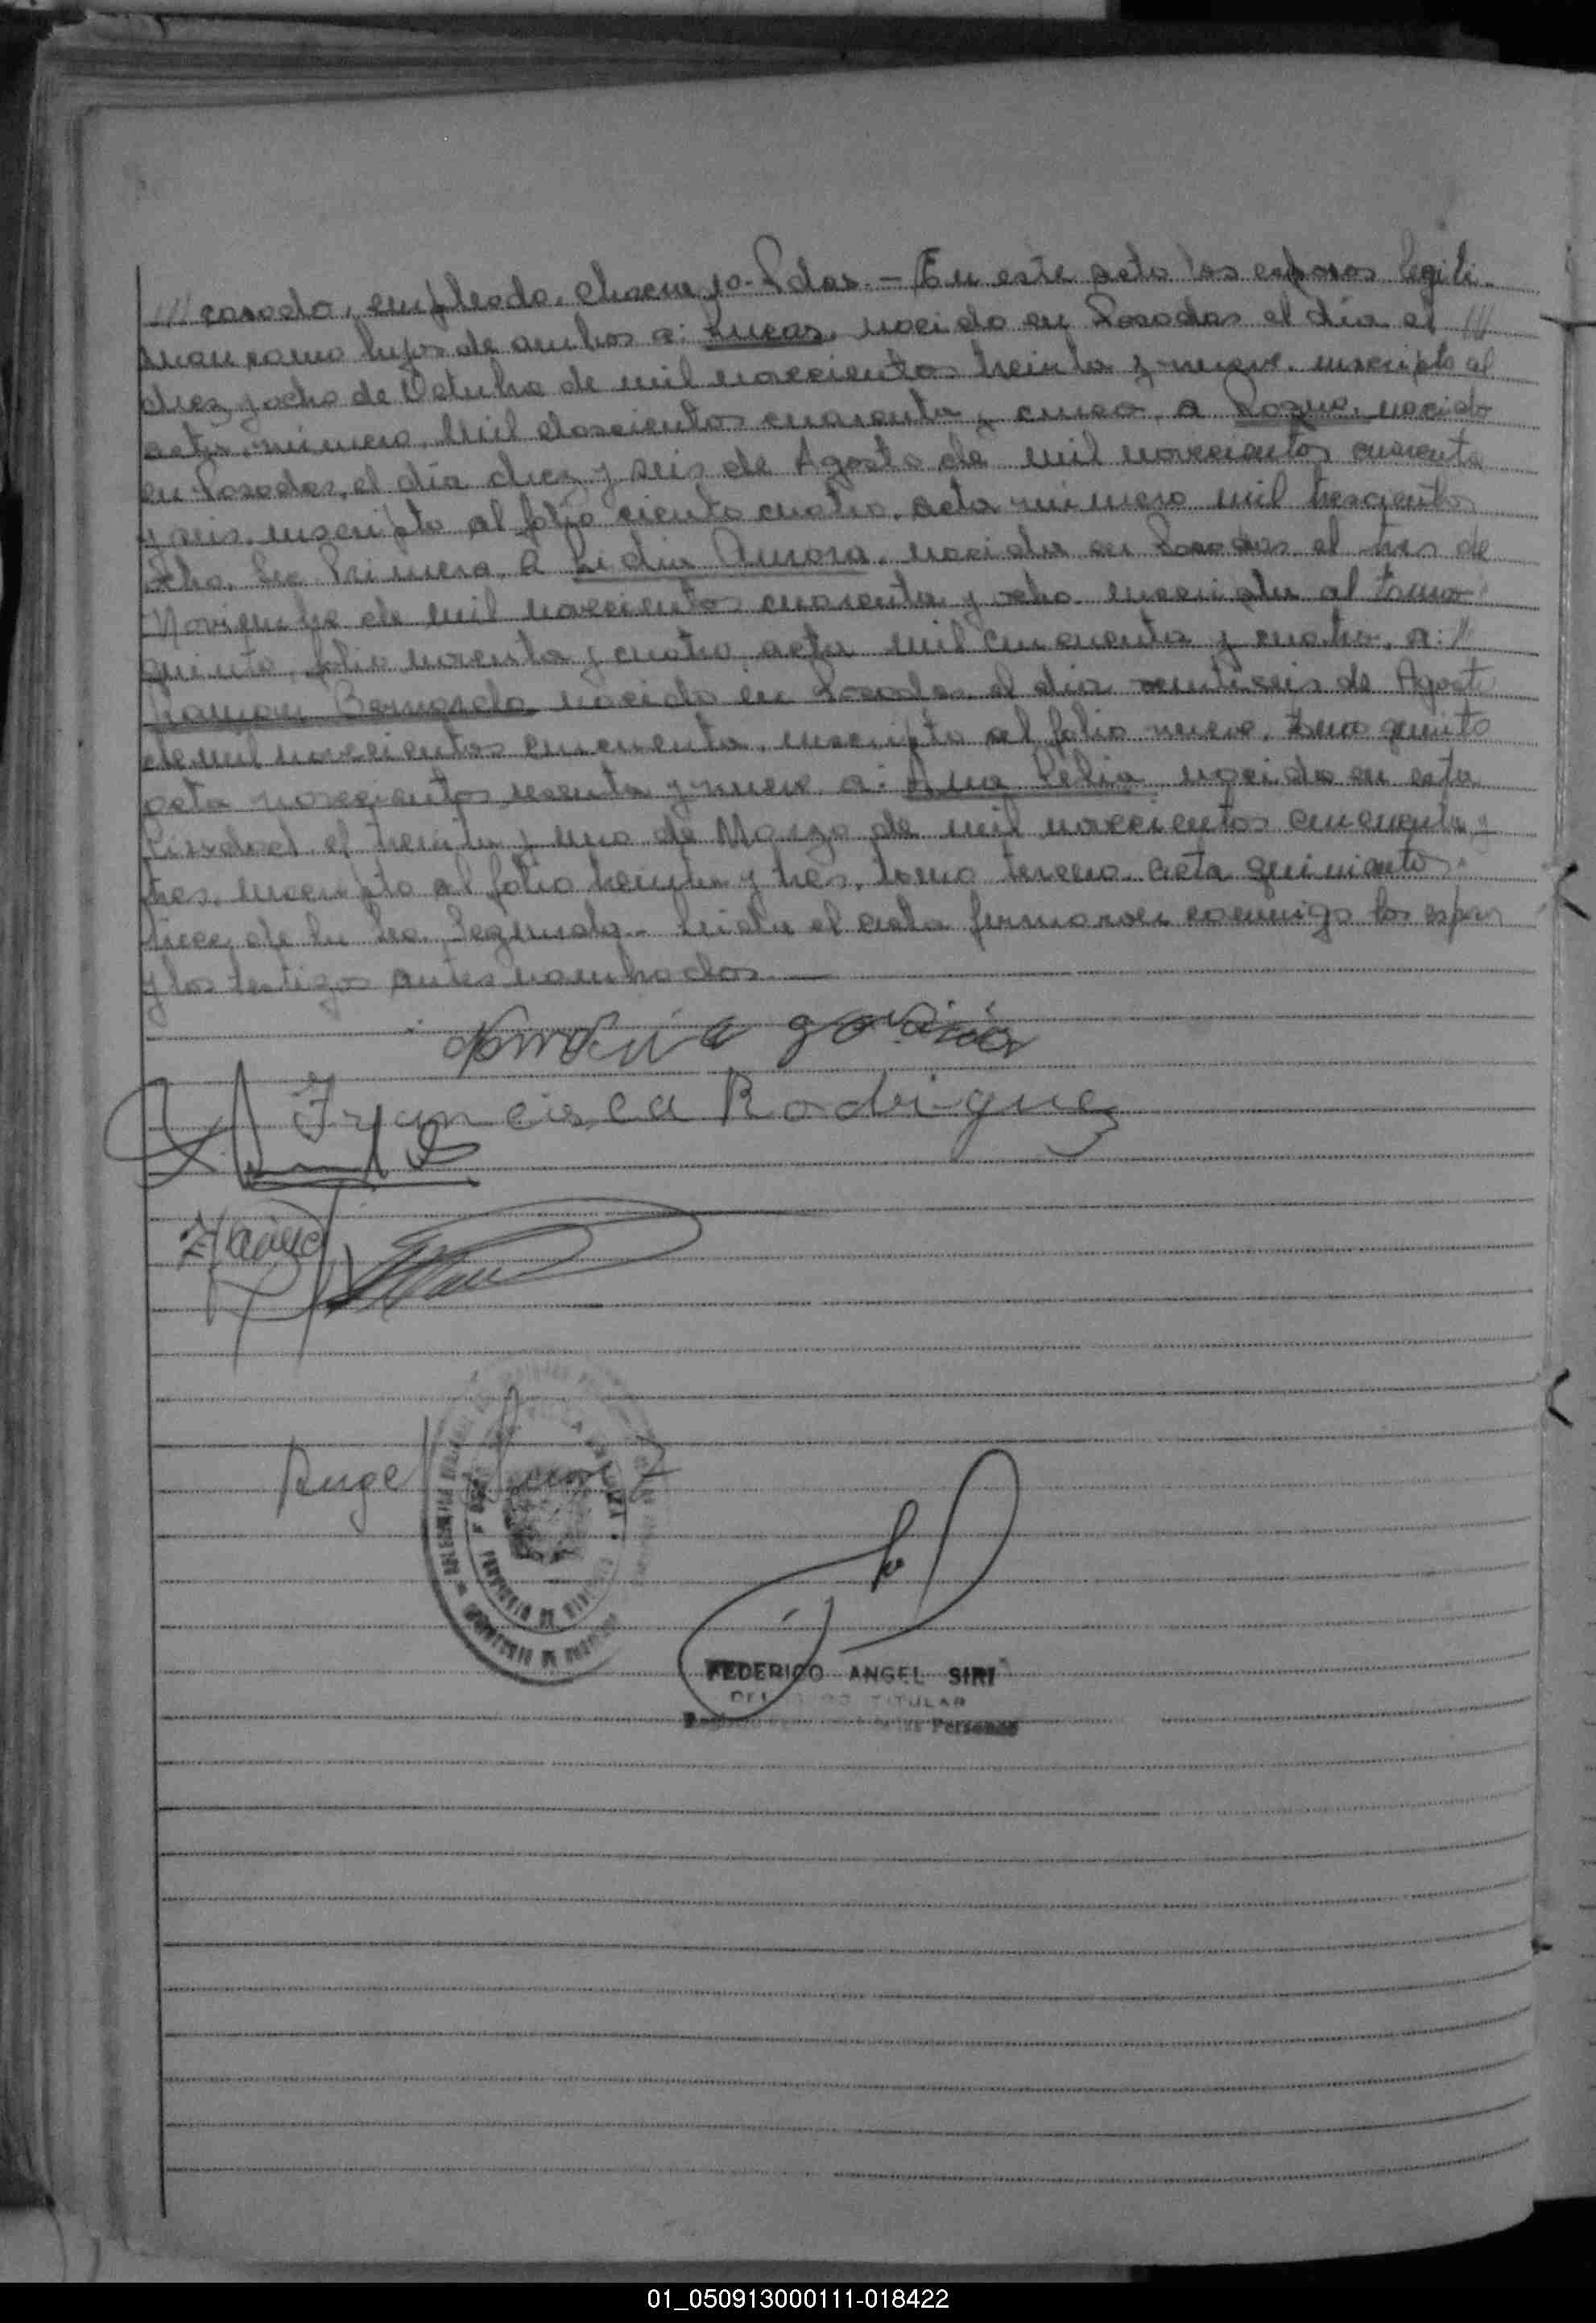 /// casado, empleado, Chacra 70. Pdas. — En este acto los esposos legiti-
man como hijos de ambos a: Lucas, nacido en Posadas el día el ///
diez y ocho de Octubre de mil novecientos treinta y nueve, inscripto al
acta número mil doscientos cuarenta y cinco, a Roque, nacido
en Posadas, el día diez y seis de Agosto de mil novecientos cuarenta
y seis, inscripto al folio ciento cuatro, acta número mil trescientos
ocho, Sec Primera, a Lidia Aurora, nacida en Posadas el tres de
Noviembre de mil novecientos cuarenta y ocho inscripta al tomo
quinto, folio noventa y cuatro, acta mil cincuenta y cuatro, a: //
Ramon Bernardo, nacido en Posadas el día veintiseis de Agosto
de mil novecientos cincuenta, inscripto al folio nueve, tomo quinto
acta novecientos y nueve a: Ana Celia nacida en esta
Ciudad el treinta y uno de Marzo de mil novecientos cincuenta y
tres, inscripto al folio treinta y tres, tomo tercero, acta quinientos
trece de la Sec. Segunda.- Leida el acta firmaron conmigo los espos
y los testigos antes nombrados. —
Francisca Rodriguez
Angel
PROVINCIA DE MISIONES
FEDERICO ANGEL SIRI
TITULAR
las Personas
01_050913000111-018422